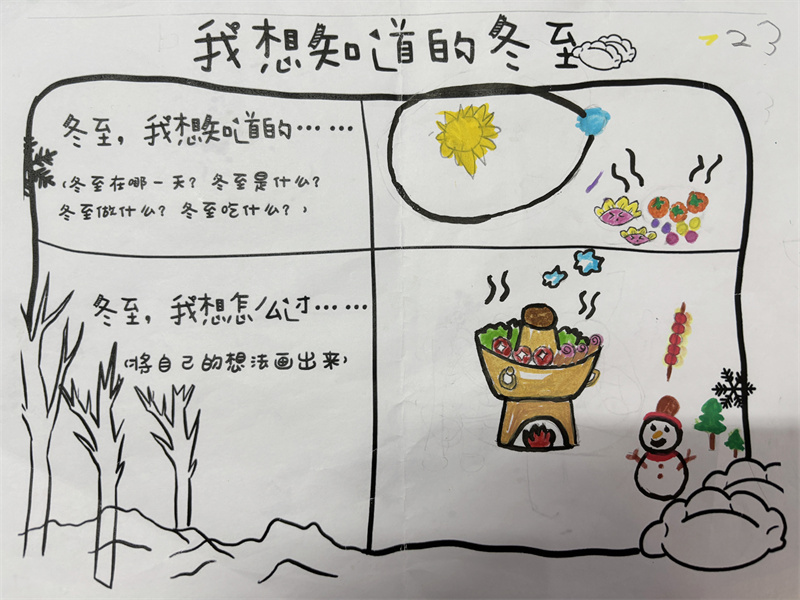 我想知道的冬至
123
冬至，我想知道的……
（冬至在哪一天？冬至是什么？
冬至做什么？冬至吃什么？）
冬至，我想怎么过……
（将自己的想法画出来）